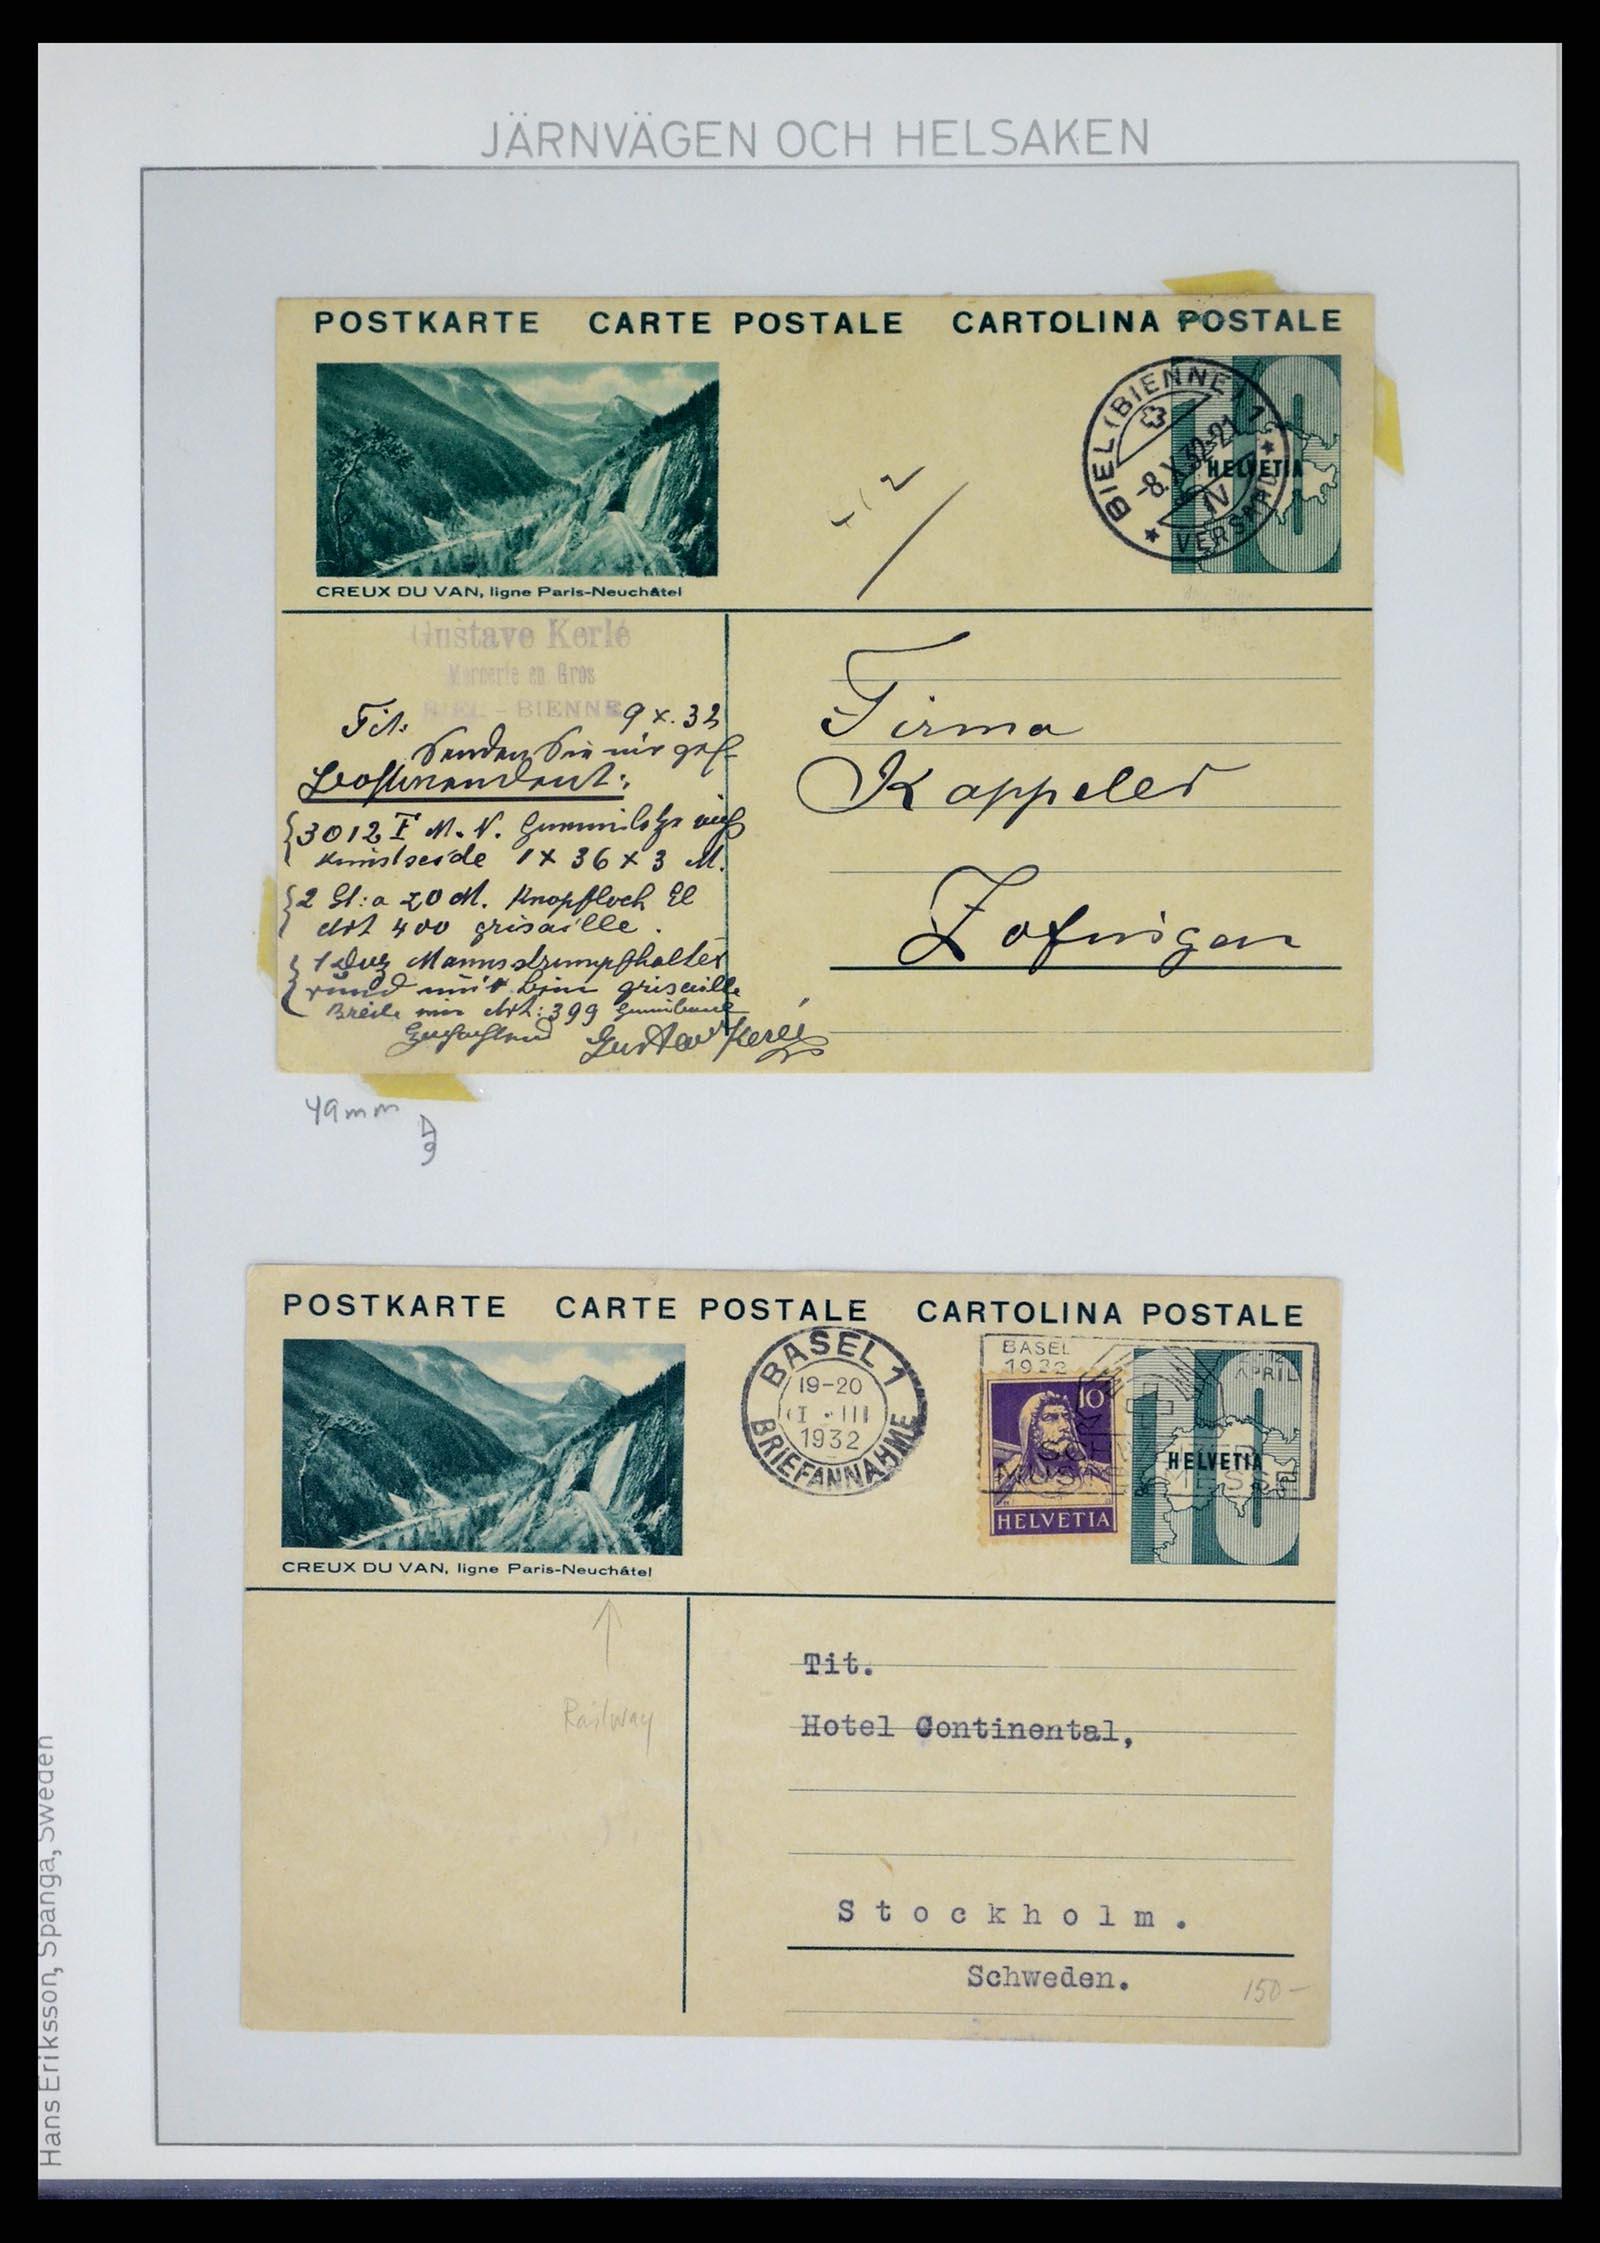 JÄRNVÄGEN OCH HELSAKEN
POSTKARTE CARTE POSTALE CARTOLINA POSTALE
BIEL (BIENNE) 1
-8.X.32-21
IV
VERSAND
10
HELVETIA
CREUX DU VAN, ligne Paris-Neuchâtel
Gustave Kerlé
Mercerie en Gros
BIEL - BIENNE
Tit. 9 X. 32
Senden Sie mir gefl.
Postwendend:
3012 F M. N.
Kunstseide 1 x 36 x 3 M.
2 St: a 20 M. Knopfloch El
Art 400 grisaille.
1 Duz Mannsstrumpfhalter
rund mit grisaille
Breite Art: 399
Gustav Kerlé
Firma
Kappeler
Zofingen
49mm
POSTKARTE CARTE POSTALE CARTOLINA POSTALE
BASEL 1
19-20
III
1932
BRIEFANNAHME
BASEL
1932
APRIL
MUSTER MESSE
10
HELVETIA
10
HELVETIA
CREUX DU VAN, ligne Paris-Neuchâtel
Railway
Tit.
Hotel Continental,
Stockholm.
Schweden.
150-
Hans Eriksson, Spanga, Sweden